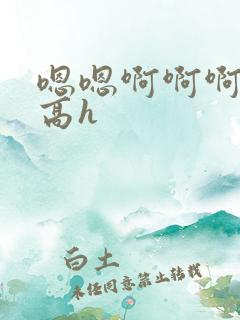 嗯嗯啊啊啊
高h
白土
未经同意禁止转载